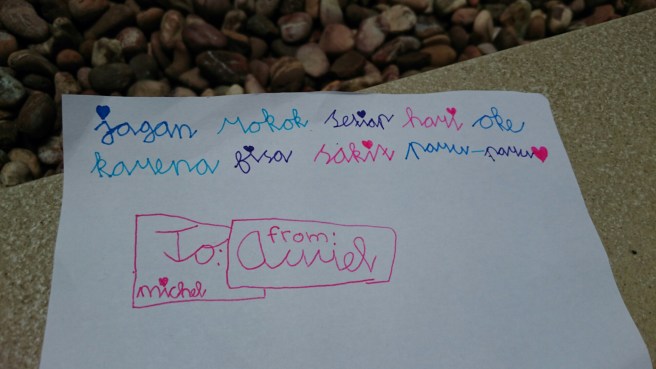 jagan rokok setiap hari oke
karena bisa sakit paru-paru
To:
michel
from: